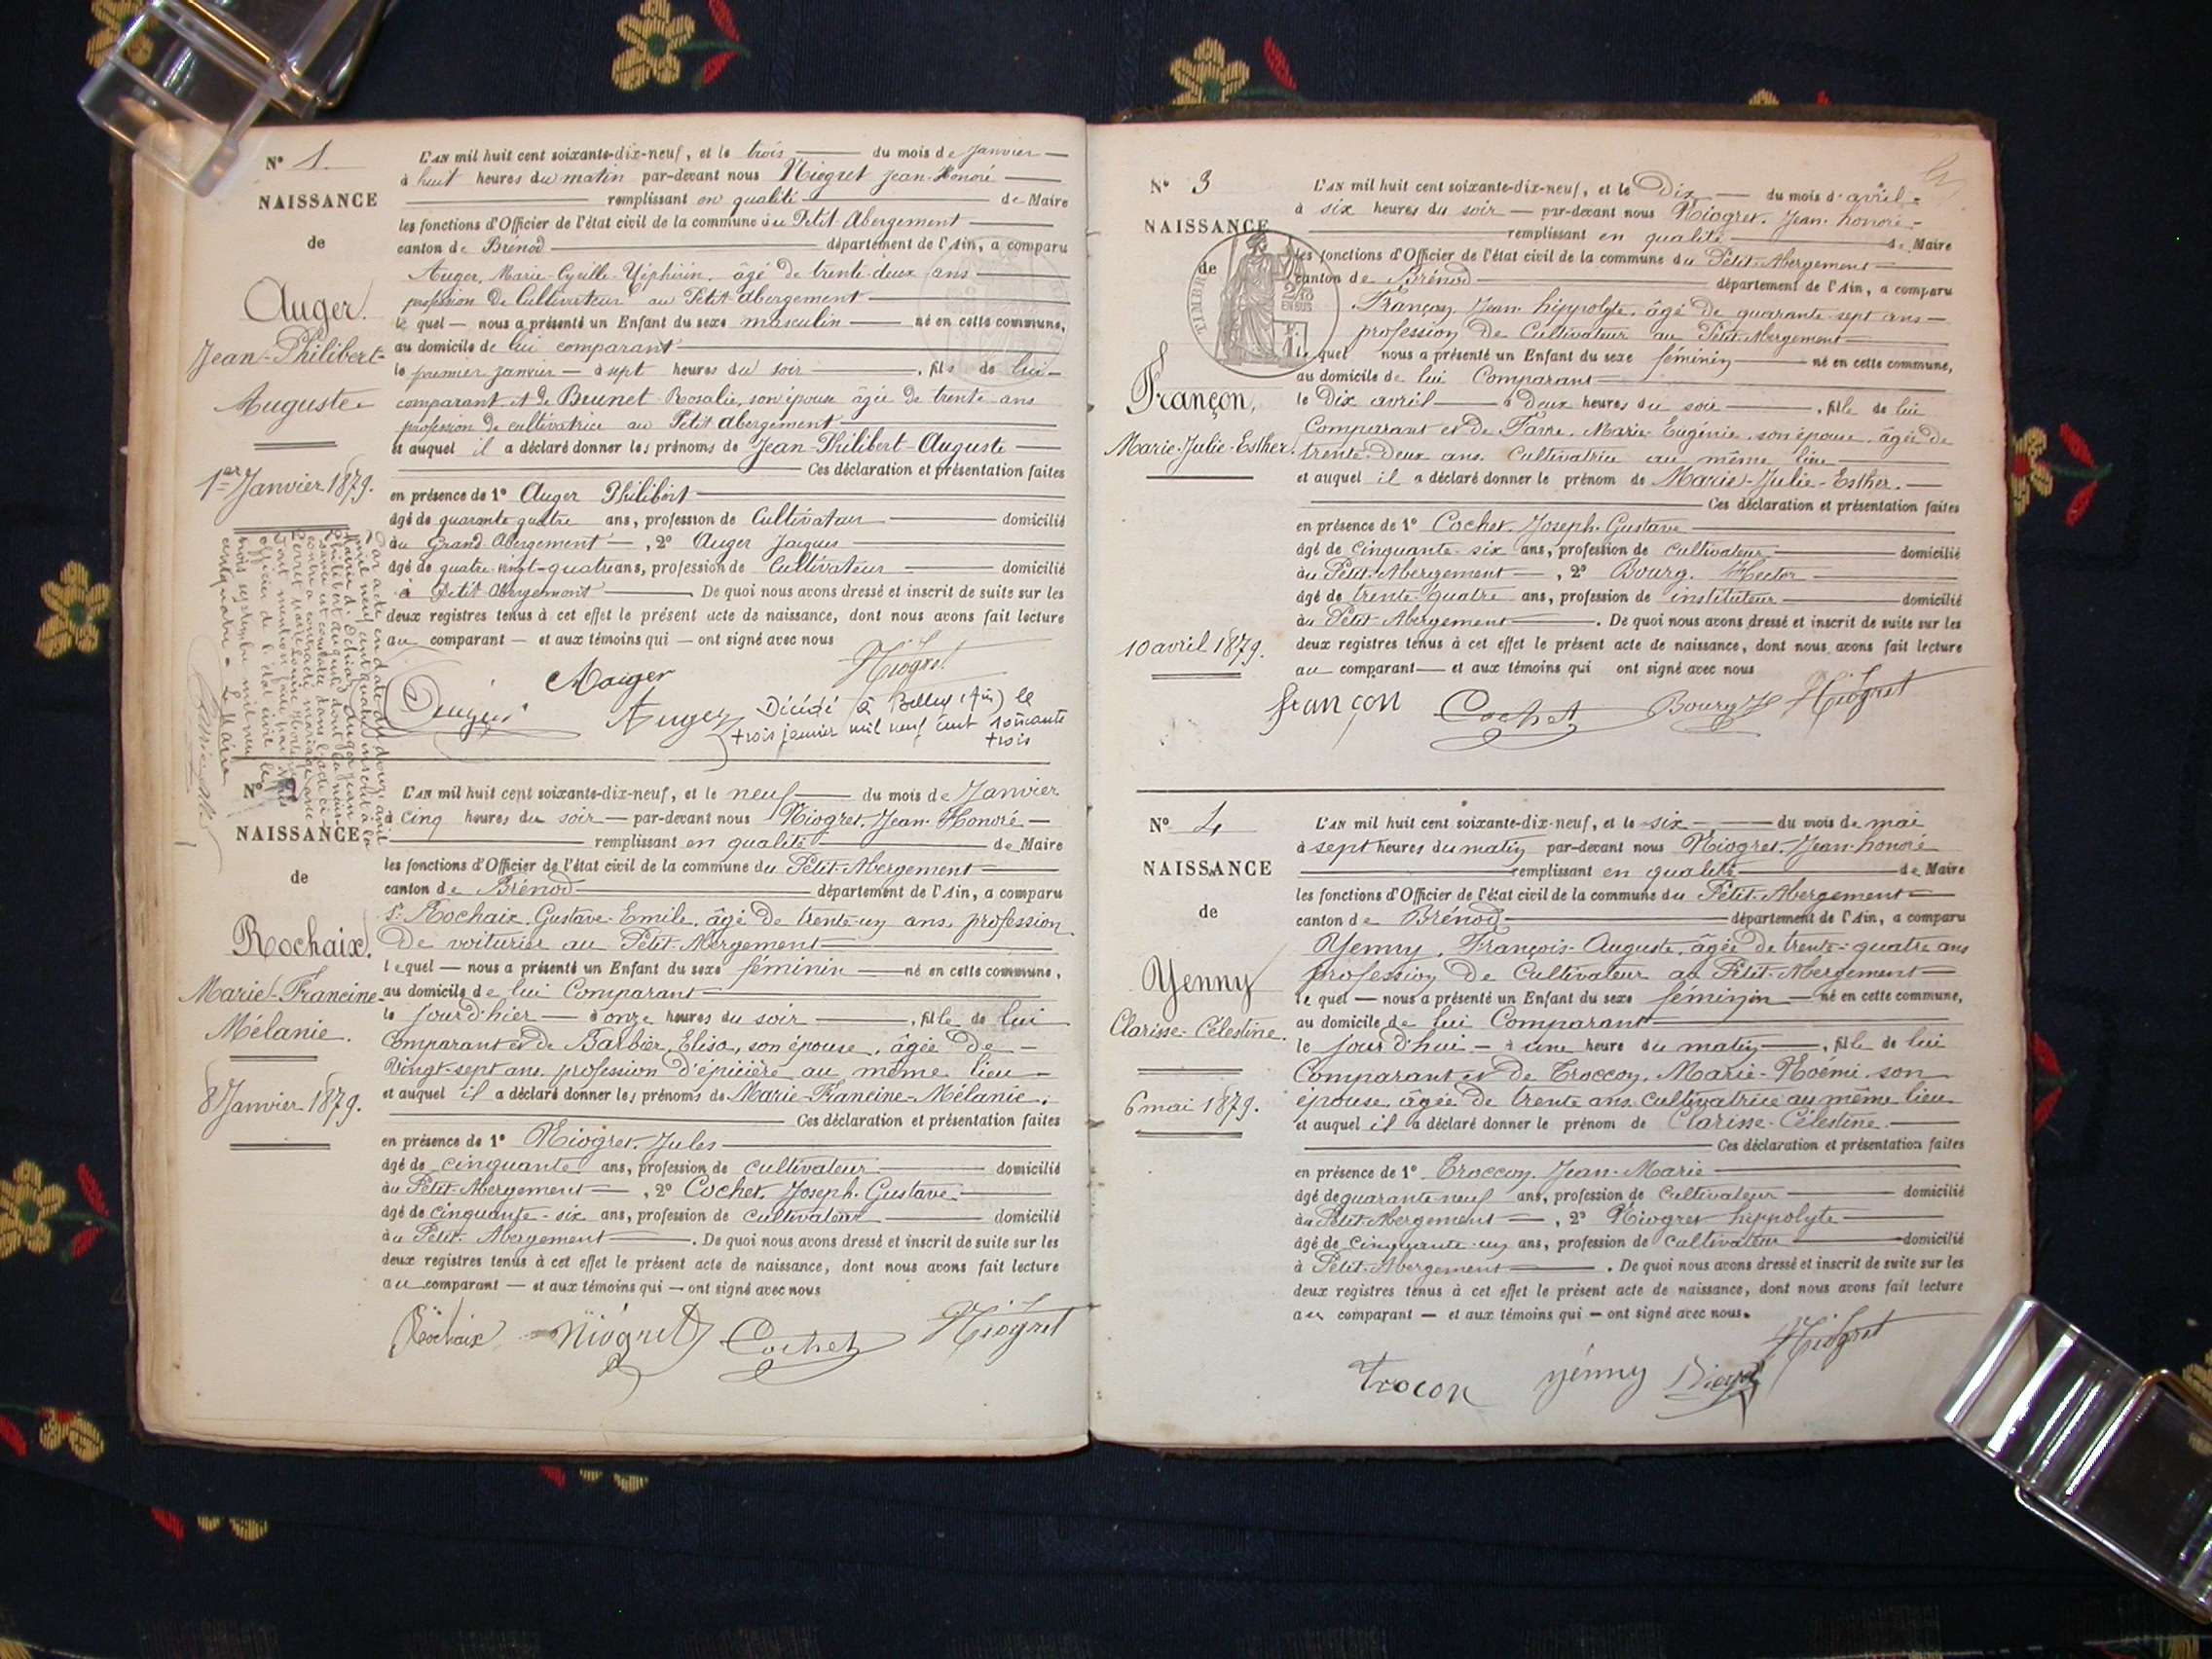 N° 1.
NAISSANCE
de
Auger.
Jean-Philibert-
Auguste
1er Janvier 1879.
L'AN mil huit cent soixante-dix-neuf, et le trois du mois de Janvier
à huit heures du matin par-devant nous Niogret Jean-Honoré
remplissant en qualité de Maire
les fonctions d'Officier de l'état civil de la commune du Petit Abergement
canton de Brénod département de l'Ain, a comparu
Auger, Marie-Cyrille-Zéphirin, âgé de trente-deux ans
profession de Cultivateur au Petit Abergement
le quel — nous a présenté un Enfant du sexe masculin né en cette commune,
au domicile de lui comparant
le premier janvier — à sept heures du soir, fils de lui
comparant et de Brunet Rosalie, son épouse âgée de trente ans
profession de cultivatrice au Petit Abergement
et auquel il a déclaré donner les prénoms de Jean-Philibert-Auguste
Ces déclaration et présentation faites
en présence de 1° Auger Philibert
âgé de quarante quatre ans, profession de Cultivateur domicilié
au Grand-Abergement, 2° Auger Jacques
âgé de quatre-vingt-quatre ans, profession de Cultivateur domicilié
à Petit Abergement. De quoi nous avons dressé et inscrit de suite sur les
deux registres tenus à cet effet le présent acte de naissance, dont nous avons fait lecture
au comparant — et aux témoins qui — ont signé avec nous
Niogret
Auger
Auger
Décédé à Belley (Ain) le
trois janvier mil neuf cent soixante
trois
N°
NAISSANCE
de
Rochaix.
Marie-Francine-
Mélanie.
8 Janvier 1879.
L'AN mil huit cent soixante-dix-neuf, et le neuf du mois de Janvier
à cinq heures du soir — par-devant nous Niogret, Jean-Honoré —
remplissant en qualité de Maire
les fonctions d'Officier de l'état civil de la commune du Petit-Abergement
canton de Brénod département de l'Ain, a comparu
Sr Rochaix, Gustave-Emile, âgé de trente-un ans, profession
de voiturier au Petit-Abergement
lequel — nous a présenté un Enfant du sexe féminin né en cette commune,
au domicile de lui Comparant
le jour d'hier — à onze heures du soir, fille de lui
Comparant et de Barbier, Elisa, son épouse, âgée de —
Vingt-sept ans, profession d'épicière au même lieu —
et auquel il a déclaré donner les prénoms de Marie-Francine-Mélanie.
Ces déclaration et présentation faites
en présence de 1° Niogret, Jules
âgé de cinquante ans, profession de cultivateur domicilié
au Petit-Abergement, 2° Cochet, Joseph-Gustave
âgé de cinquante-six ans, profession de cultivateur domicilié
au Petit-Abergement. De quoi nous avons dressé et inscrit de suite sur les
deux registres tenus à cet effet le présent acte de naissance, dont nous avons fait lecture
au comparant — et aux témoins qui — ont signé avec nous
Rochaix Niogret Cochet Niogret
N° 3
NAISSANCE
de
TIMBRE
Françon,
Marie-Julie-Esther.
10 avril 1879.
L'AN mil huit cent soixante-dix-neuf, et le Dix du mois d'avril
à six heures du soir — par-devant nous Niogret, Jean-honoré
remplissant en qualité de Maire
les fonctions d'Officier de l'état civil de la commune du Petit-Abergement
canton de Brénod département de l'Ain, a comparu
Françon, Jean-hippolyte, âgé de quarante-sept ans —
profession de Cultivateur au Petit-Abergement
lequel nous a présenté un Enfant du sexe féminin né en cette commune,
au domicile de lui Comparant
le Dix avril à Deux heures du soir, fille de lui
Comparant et de Favre, Marie-Eugénie, son épouse, âgée de
trente-Deux ans, Cultivatrice au même lieu
et auquel il a déclaré donner le prénom de Marie-Julie-Esther.
Ces déclaration et présentation faites
en présence de 1° Cochet, Joseph-Gustave
âgé de cinquante-six ans, profession de cultivateur domicilié
au Petit-Abergement, 2° Bourg, Hector
âgé de trente-quatre ans, profession de instituteur domicilié
au Petit-Abergement. De quoi nous avons dressé et inscrit de suite sur les
deux registres tenus à cet effet le présent acte de naissance, dont nous avons fait lecture
au comparant — et aux témoins qui ont signé avec nous
françon Cochet Bourg H Niogret
N° 4
NAISSANCE
de
Yenny
Clarisse-Célestine.
6 mai 1879.
L'AN mil huit cent soixante-dix-neuf, et le six du mois de mai
à sept heures du matin par-devant nous Niogret, Jean-honoré
remplissant en qualité de Maire
les fonctions d'Officier de l'état civil de la commune du Petit-Abergement
canton de Brénod département de l'Ain, a comparu
Yenny, François-Auguste, âgée de trente-quatre ans
profession de Cultivateur au Petit-Abergement
lequel — nous a présenté un Enfant du sexe féminin — né en cette commune,
au domicile de lui Comparant
le jour d'hui — à une heure du matin, fille de lui
Comparant et de Troccon, Marie-Noémie, son
épouse, âgée de trente ans, cultivatrice au même lieu
et auquel il a déclaré donner le prénom de Clarisse-Célestine.
Ces déclaration et présentation faites
en présence de 1° Troccon, Jean-Marie
âgé de quarante-neuf ans, profession de Cultivateur domicilié
au Petit-Abergement, 2° Niogret hippolyte
âgé de cinquante-un ans, profession de Cultivateur domicilié
à Petit-Abergement. De quoi nous avons dressé et inscrit de suite sur les
deux registres tenus à cet effet le présent acte de naissance, dont nous avons fait lecture
au comparant — et aux témoins qui — ont signé avec nous.
Niogret
Trocon yénny